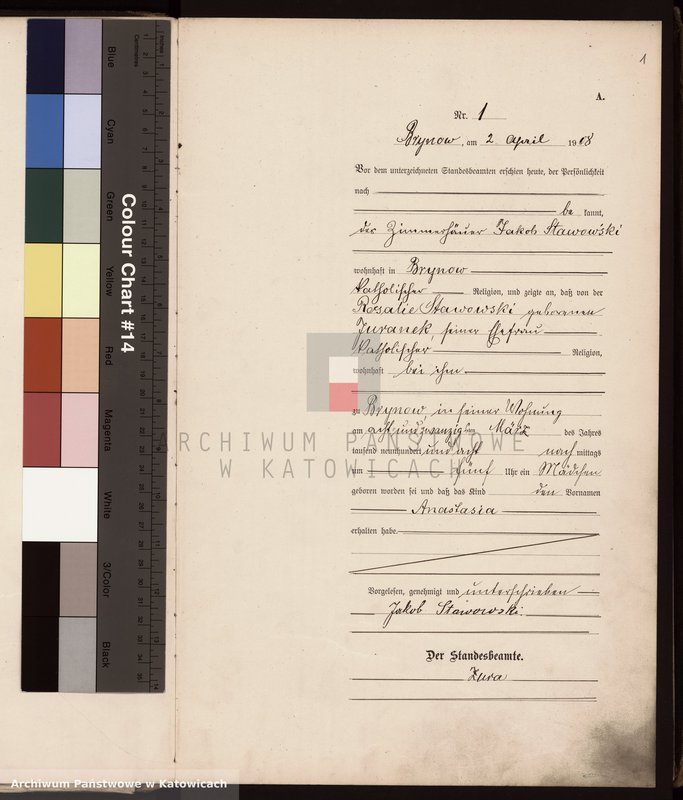 1
A.
Nr. 1
Brynow, am 2 April 1908
Vor dem unterzeichneten Standesbeamten erschien heute, der Persönlichkeit
nach
be kannt,
der Zimmerhäuer Jakob Stawowski
wohnhaft in Brynow
katholischer Religion, und zeigte an, daß von der
Rosalie Stawowski geborenen
Juranek, seiner Ehefrau
katholischer Religion,
wohnhaft bei ihm
zu Brynow, in seiner Wohnung
am acht und zwanzigsten März des Jahres
tausend neunhundert und acht nach mittags
um fünf Uhr ein Mädchen
geboren worden sei und daß das Kind den Vornamen
Anastasia
erhalten habe.
Vorgelesen, genehmigt und unterschrieben
Jakob Stawowski
Der Standesbeamte.
Zura
ARCHIWUM PAŃSTWOWE
W KATOWICACH
Colour Chart #14
Blue
Cyan
Green
Yellow
Red
Magenta
White
3/Color
Black
Centimetres
Inches
Archiwum Państwowe w Katowicach